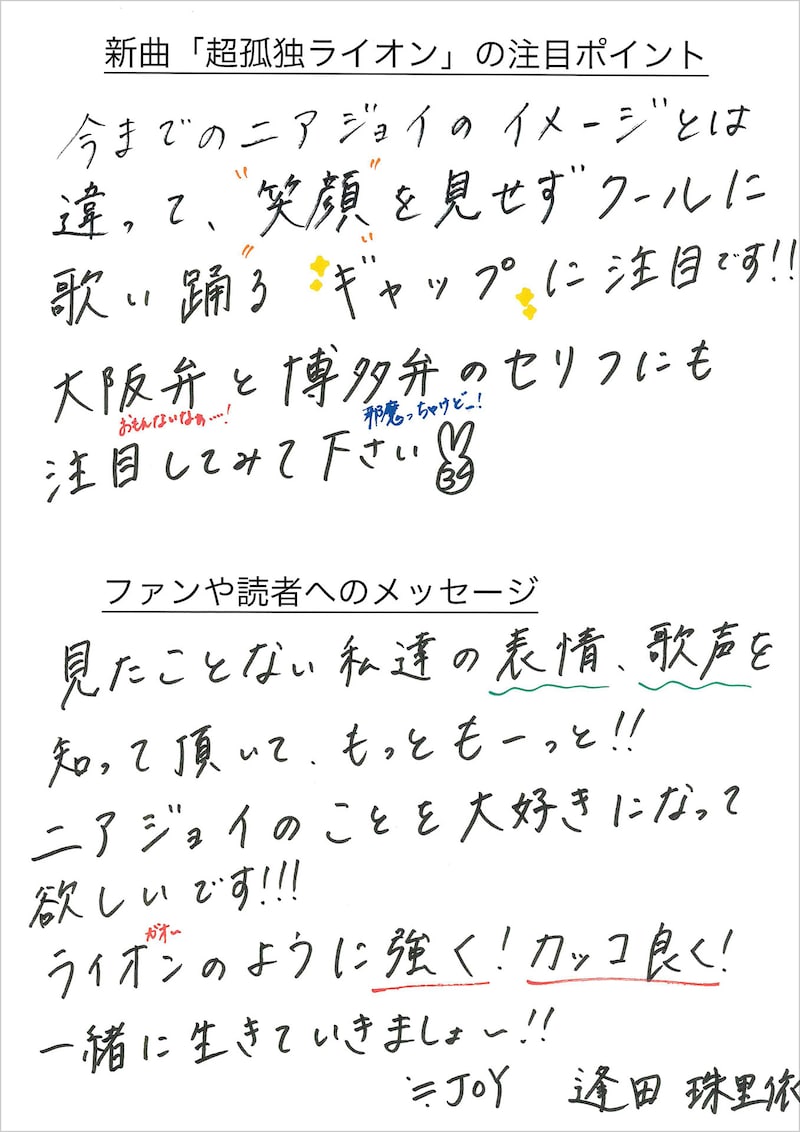 新曲「超孤独ライオン」の注目ポイント
今までのニアジョイのイメージとは
違って、"笑顔"を見せずクールに
歌い踊る"ギャップ"に注目です!!
大阪弁と博多弁のセリフにも
おもんないなぁ…! 邪魔っちゃけどー!
注目してみて下さい
ファンや読者へのメッセージ
見たことない私達の表情、歌声を
知って頂いて、もっともーっと!!
ニアジョイのことを大好きになって
欲しいです!!!
ガオー
ライオンのように強く!カッコ良く!
一緒に生きていきましょ〜!!
≒JOY 逢田 珠里依